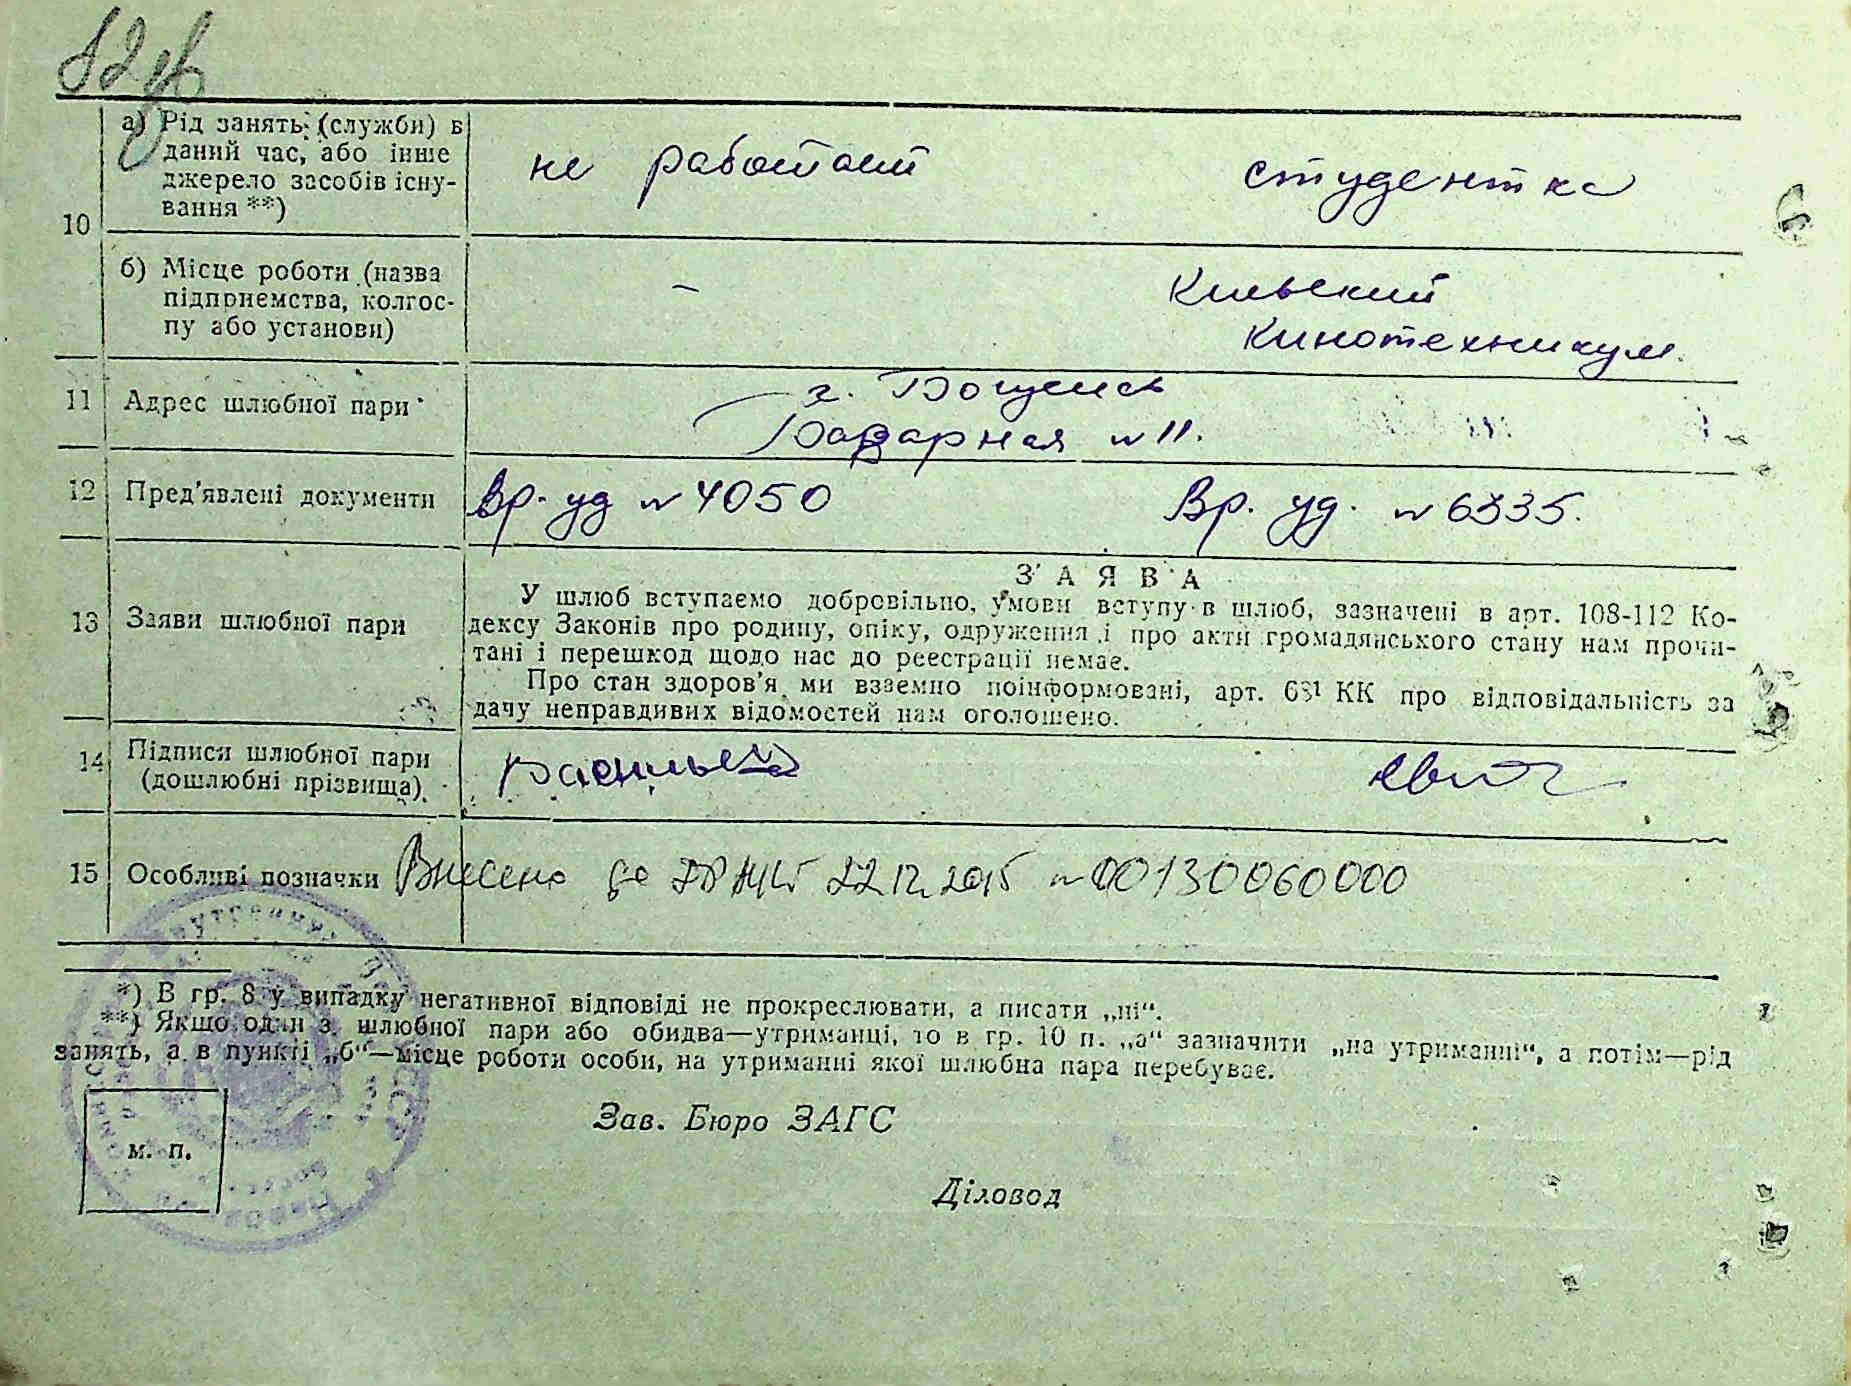 а) Рід занять (службы) в
даний час, або інше
джерело засобів існу-
вання **)
не работает
студентка
10
б) Місце роботи (назва
підприємства, колгос-
пу або установи)
-
Киевский
Кинотехникум.
11
Адрес шлюбної пари
г.
Базарная № 11.
12
Пред'явлені документи
Вр. уд № 4050
Вр. уд. № 6335.
13
Заяви шлюбної пари
ЗАЯВА
У шлюб вступаємо добровільно, умови вступу в шлюб, зазначені в арт. 108-112 Ко-
дексу Законів про родину, опіку, одруження і про акти громадянського стану нам прочи-
тані і перешкод щодо нас до реестрації немає.
Про стан здоров'я ми взаємно поінформовані, арт. 68¹ КК про відповідальність за
дачу неправдивих відомостей нам оголошено.
14
Підписи шлюбної пари
(дошлюбні прізвища)
15
Особливі позначки
Внесено до 22.12.2015 № 00130060000
*) В гр. 8 у випадку негативної відповіді не прокреслювати, а писати „ні“.
**) Якщо один з шлюбної пари або обидва—утриманці, то в гр. 10 п. „а“ зазначити „на утриманні“, а потім—рід
занять, а в пункті „б“—місце роботи особи, на утриманні якої шлюбна пара перебуває.
Зав. Бюро ЗАГС
м. п.
Діловод